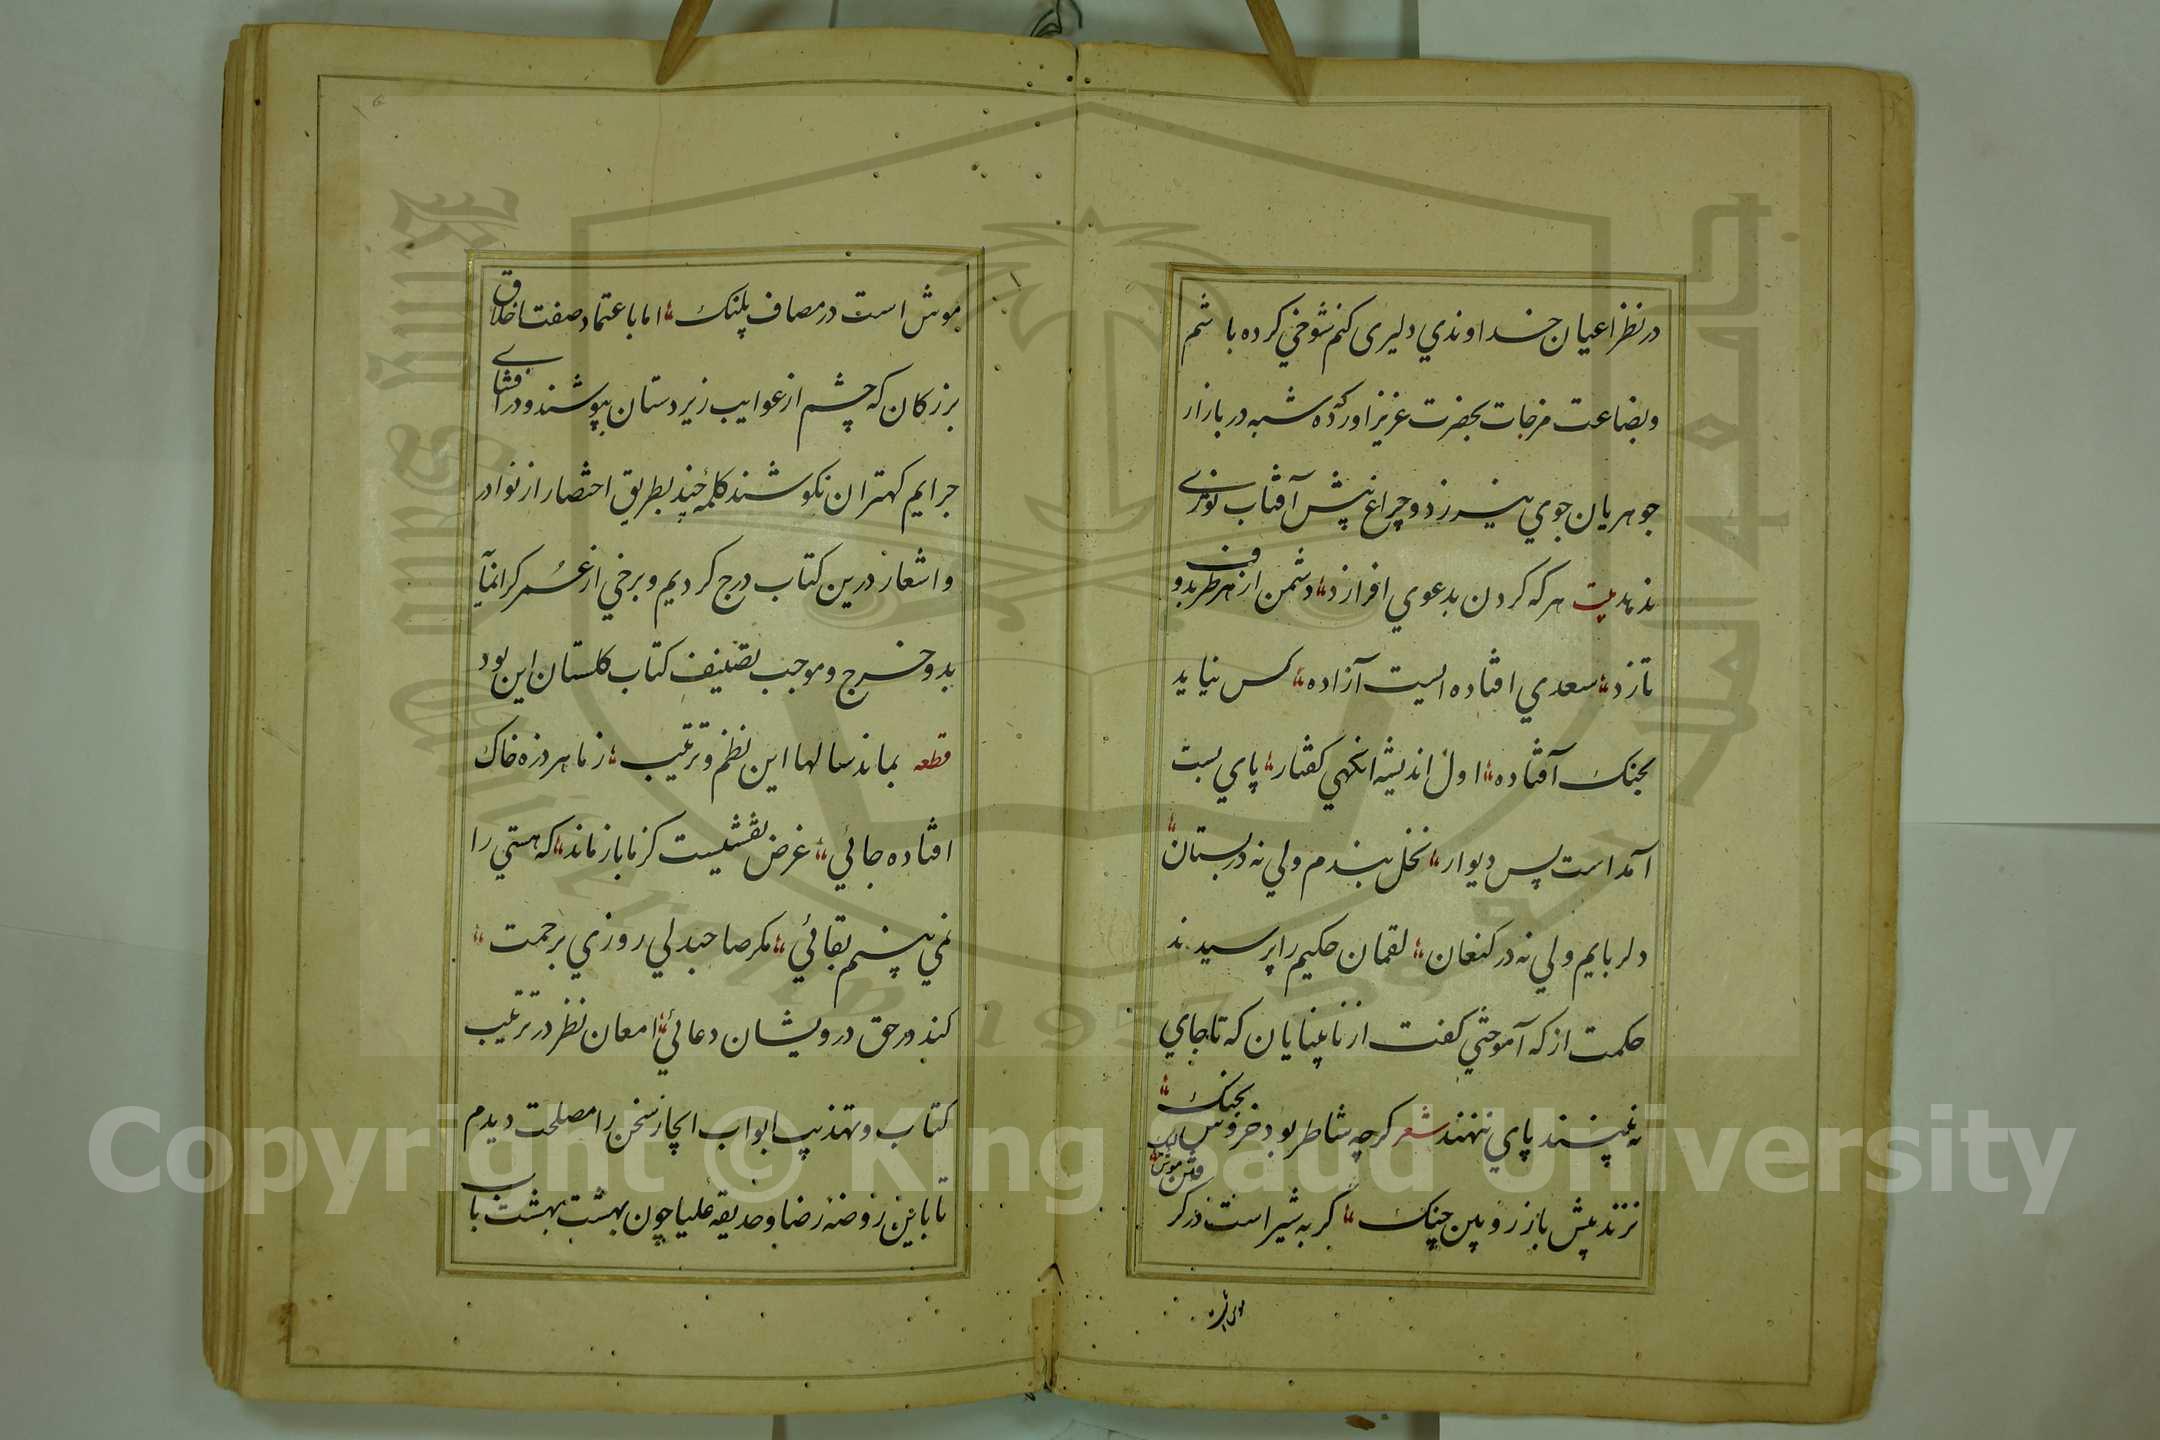 در نظر اعیان خداوندي دلیری کنم شوخي کرده باشم
و بضاعت مزجات بحضرت عزیز اورده که شبه در بازار
جوهریان جوي نیرزد و چراغ پیش آفتاب نوری
ندهد بیت هر که کردن بدعوي افرازد دشمن از هر طرف بدو
تازد سعدي افتاده ایست آزاده کس نیاید
بجنك آفتاده اول اندیشه انکهي کفتار پاي بست
آمد است پس دیوار نخل بندم ولي نه در بستان
دلربایم ولي نه در کنعان لقمان حکیم را پرسیدند
حکمت از که آموختي کفت از نابینایان که تا جاي
نه بینند پاي ننهند شعر کرچه شاطر بود خروس بجنك
نزند پیش باز رویین چنك کربه شیر است در کرفتن موش لیك
موش است
موش است در مصاف پلنك اما باعتماد صفت اخلاق
بزرکان که چشم از عوایب زیردستان بپوشند و در افشای
جرایم کهتران نکوشند کلمهٔ چند بطریق اختصار از نوادر
و اشعار درین کتاب درج کردیم و برخي از عمر کرانمایه
بدو خرج و موجب تصنیف کتاب کلستان این بود
قطعه بماند سالها این نظم و ترتیب ز ما هر ذره خاك
افتاده جائي غرض نقشیست کز ما باز ماند که هستي را
نمي بینم بقائي مکر صاحبدلي روزي برحمت
کند در حق درویشان دعائي امعان نظر در ترتیب
کتاب و تهذیب ابواب ایجاز سخن را مصلحت دیدم
تا باین روضه رضا و حدیقه علیا چون بهشت بهشت باب
Copyright © King Saud University